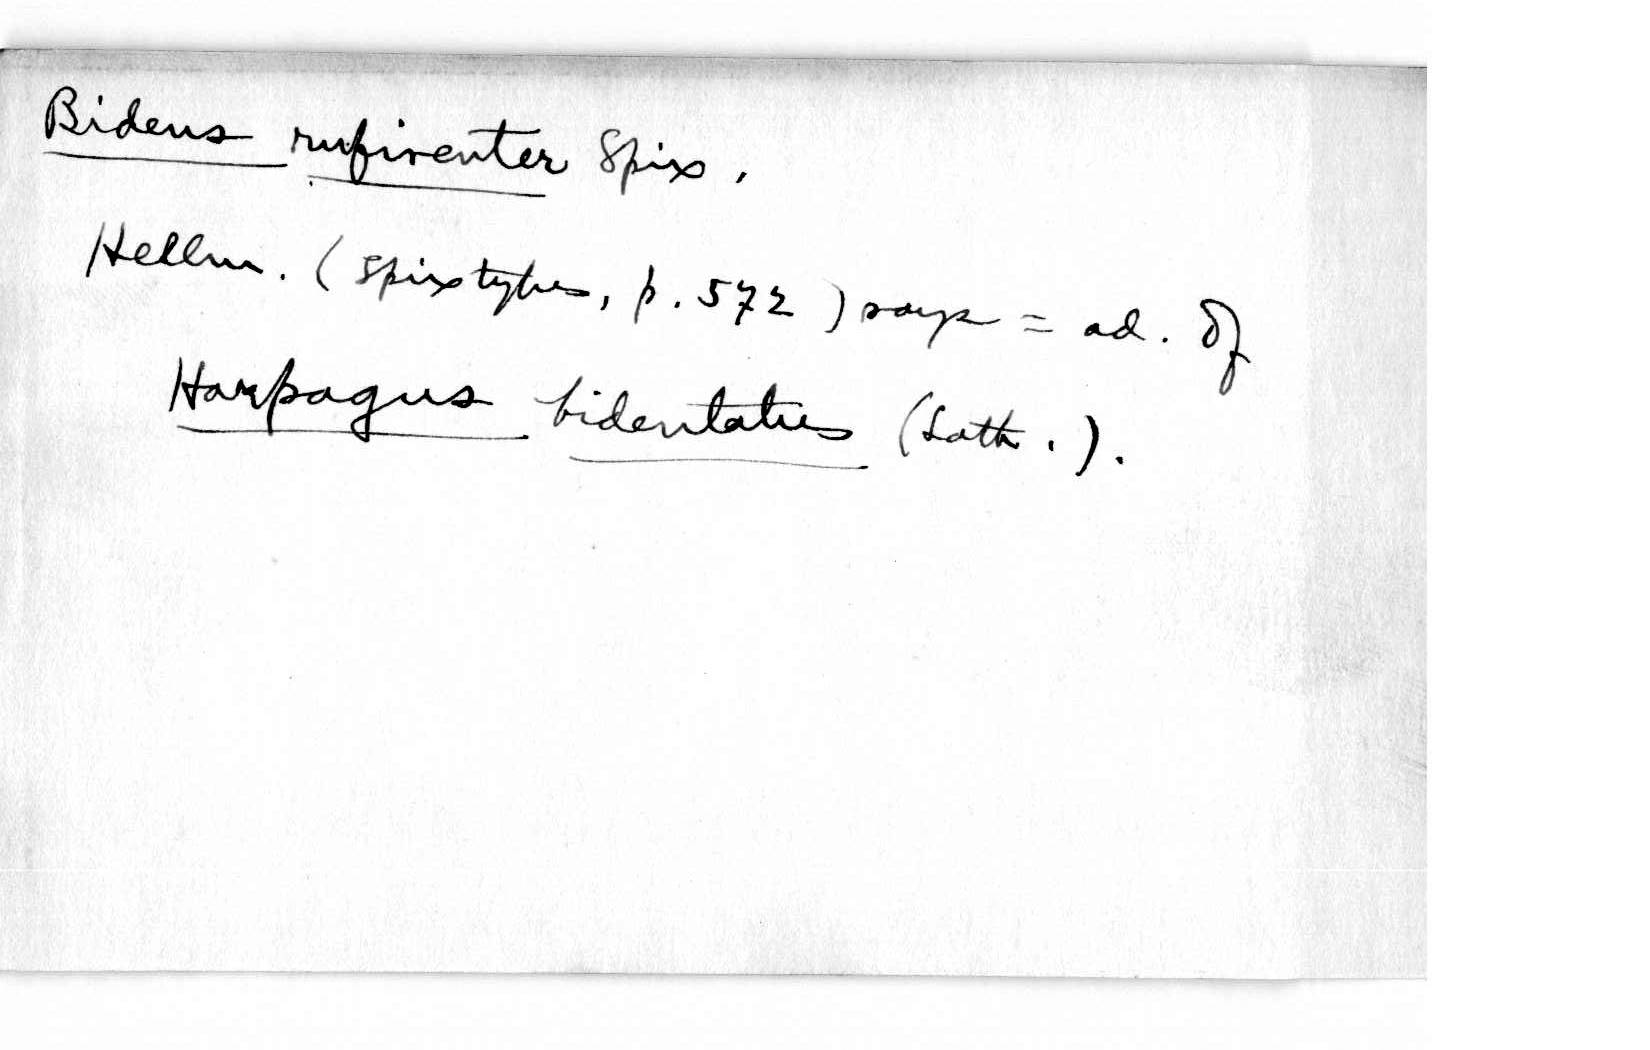 Bidens rufiventer Spix.
Hellm. (Spixtypes, p. 572) says = ad. of
Harpagus bidentatus (Lath.).